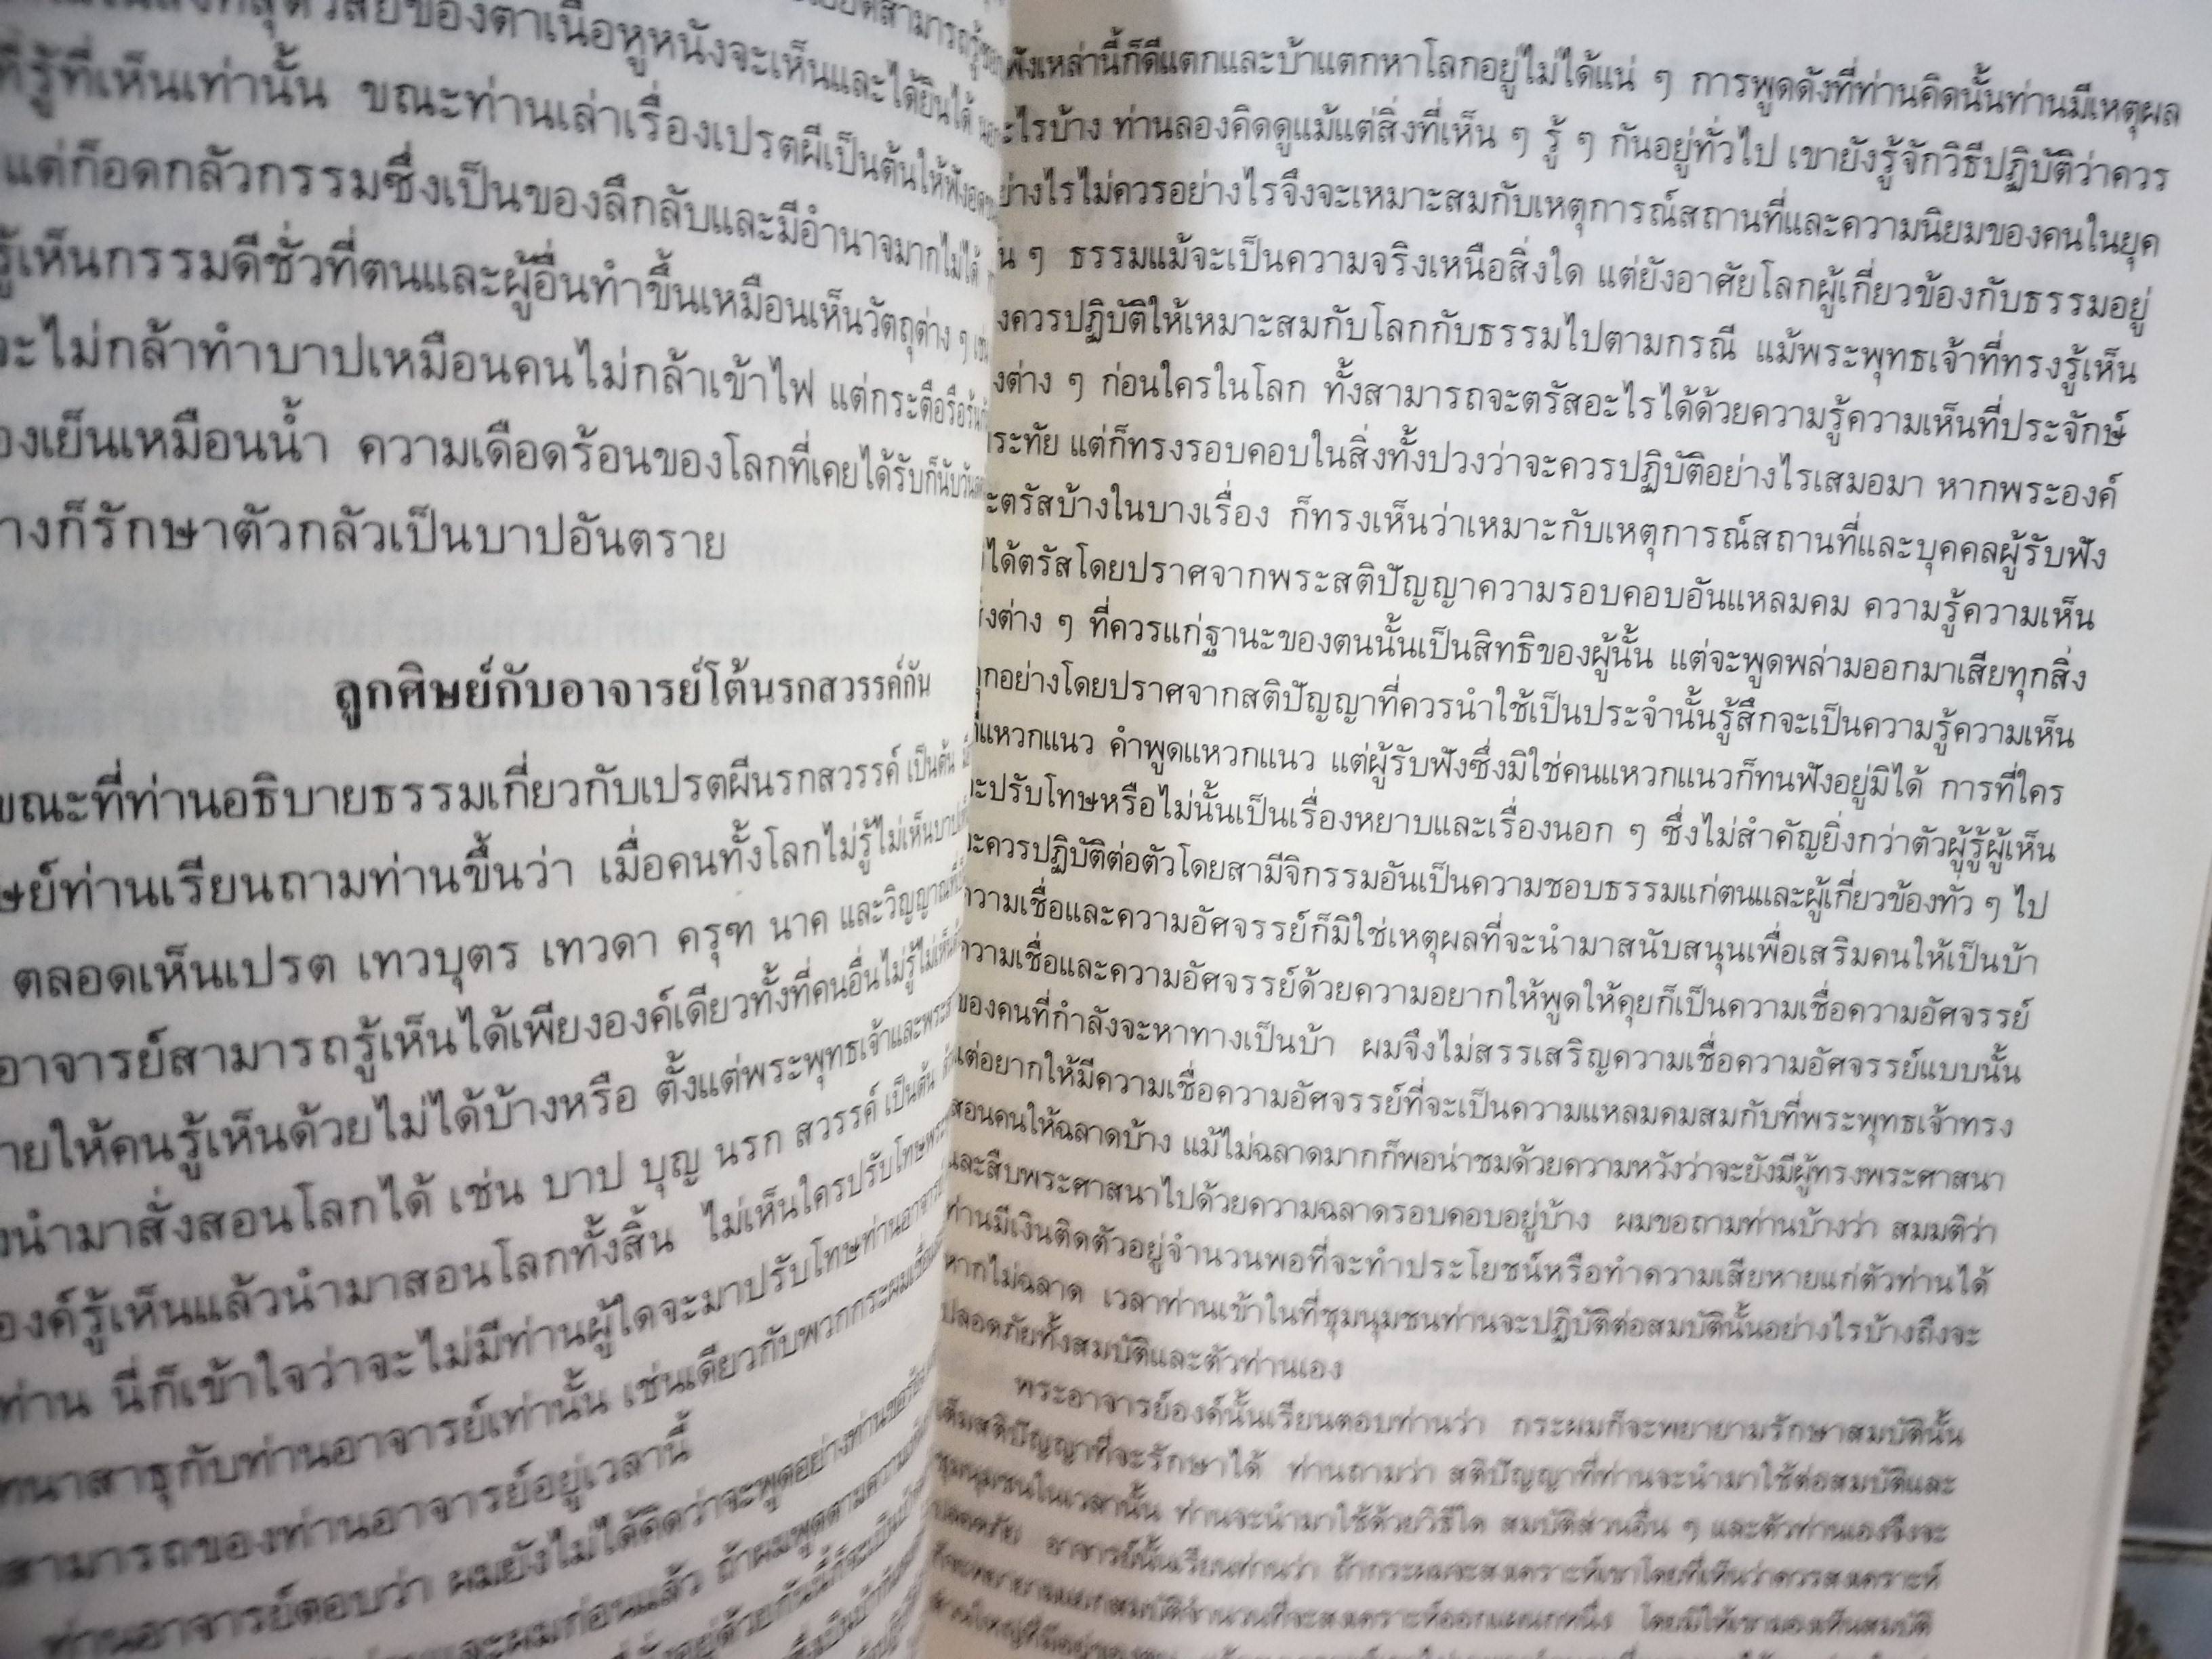 ของตาเนื้อหูหนังจะเห็นและได้ยินได้
ที่รู้ที่เห็นเท่านั้น ขณะท่านเล่าเรื่องเปรตผีเป็นต้นให้ฟังอดขน
แต่ก็อดกลัวกรรมซึ่งเป็นของลึกลับและมีอำนาจมากไม่ได้
รู้เห็นกรรมดีชั่วที่ตนและผู้อื่นทำขึ้นเหมือนเห็นวัตถุต่าง ๆ เช่น
จะไม่กล้าทำบาปเหมือนคนไม่กล้าเข้าไฟ แต่กระตือรือร้น
องเย็นเหมือนน้ำ ความเดือดร้อนของโลกที่เคยได้รับก็นับวัน
างก็รักษาตัวกลัวเป็นบาปอันตราย
ลูกศิษย์กับอาจารย์โต้นรกสวรรค์กัน
ขณะที่ท่านอธิบายธรรมเกี่ยวกับเปรตผีนรกสวรรค์ เป็นต้น
ษย์ท่านเรียนถามท่านขึ้นว่า เมื่อคนทั้งโลกไม่รู้ไม่เห็นบาป
ตลอดเห็นเปรต เทวบุตร เทวดา ครุฑ นาค และวิญญาณ
อาจารย์สามารถรู้เห็นได้เพียงองค์เดียวทั้งที่คนอื่นไม่รู้ไม่เห็น
ายให้คนรู้เห็นด้วยไม่ได้บ้างหรือ ตั้งแต่พระพุทธเจ้าและพระ
งนำมาสั่งสอนโลกได้ เช่น บาป บุญ นรก สวรรค์ เป็นต้น
องค์รู้เห็นแล้วนำมาสอนโลกทั้งสิ้น ไม่เห็นใครปรับโทษพระ
ท่าน นี่ก็เข้าใจว่าจะไม่มีท่านผู้ใดจะมาปรับโทษท่านอาจารย์
ทนาสาธุกับท่านอาจารย์เท่านั้น เช่นเดียวกับพวกกระผมเชื่อ
สามารถของท่านอาจารย์อยู่เวลานี้
ท่านอาจารย์ตอบว่า ผมยังไม่ได้คิดว่าจะพูดอย่างท่านขอร้อง
และผมก่อนแล้ว ถ้าผมพูดตามความ
ฟังเหล่านี้ก็ดีแตกและบ้าแตกหาโลกอยู่ไม่ได้แน่ ๆ การพูดดังที่ท่านคิดนั้นท่านมีเหตุผล
ะไรบ้าง ท่านลองคิดดูแม้แต่สิ่งที่เห็น ๆ รู้ ๆ กันอยู่ทั่วไป เขายังรู้จักวิธีปฏิบัติว่าควร
ย่างไรไม่ควรอย่างไรจึงจะเหมาะสมกับเหตุการณ์สถานที่และความนิยมของคนในยุค
ั้น ๆ ธรรมแม้จะเป็นความจริงเหนือสิ่งใด แต่ยังอาศัยโลกผู้เกี่ยวข้องกับธรรมอยู่
งควรปฏิบัติให้เหมาะสมกับโลกกับธรรมไปตามกรณี แม้พระพุทธเจ้าที่ทรงรู้เห็น
งต่าง ๆ ก่อนใครในโลก ทั้งสามารถจะตรัสอะไรได้ด้วยความรู้ความเห็นที่ประจักษ์
ระทัย แต่ก็ทรงรอบคอบในสิ่งทั้งปวงว่าจะควรปฏิบัติอย่างไรเสมอมา หากพระองค์
ะตรัสบ้างในบางเรื่อง ก็ทรงเห็นว่าเหมาะกับเหตุการณ์สถานที่และบุคคลผู้รับฟัง
ได้ตรัสโดยปราศจากพระสติปัญญาความรอบคอบอันแหลมคม ความรู้ความเห็น
ิ่งต่าง ๆ ที่ควรแก่ฐานะของตนนั้นเป็นสิทธิของผู้นั้น แต่จะพูดพล่ามออกมาเสียทุกสิ่ง
ทุกอย่างโดยปราศจากสติปัญญาที่ควรนำใช้เป็นประจำนั้นรู้สึกจะเป็นความรู้ความเห็น
ที่แหวกแนว คำพูดแหวกแนว แต่ผู้รับฟังซึ่งมิใช่คนแหวกแนวก็ทนฟังอยู่มิได้ การที่ใคร
จะปรับโทษหรือไม่นั้นเป็นเรื่องหยาบและเรื่องนอก ๆ ซึ่งไม่สำคัญยิ่งกว่าตัวผู้รู้ผู้เห็น
จะควรปฏิบัติต่อตัวโดยสามีจิกรรมอันเป็นความชอบธรรมแก่ตนและผู้เกี่ยวข้องทั่ว ๆ ไป
ความเชื่อและความอัศจรรย์ก็มิใช่เหตุผลที่จะนำมาสนับสนุนเพื่อเสริมคนให้เป็นบ้า
ความเชื่อและความอัศจรรย์ด้วยความอยากให้พูดให้คุยก็เป็นความเชื่อความอัศจรรย์
ของคนที่กำลังจะหาทางเป็นบ้า ผมจึงไม่สรรเสริญความเชื่อความอัศจรรย์แบบนั้น
แต่อยากให้มีความเชื่อความอัศจรรย์ที่จะเป็นความแหลมคมสมกับที่พระพุทธเจ้าทรง
สอนคนให้ฉลาดบ้าง แม้ไม่ฉลาดมากก็พอน่าชมด้วยความหวังว่าจะยังมีผู้ทรงพระศาสนา
และสืบพระศาสนาไปด้วยความฉลาดรอบคอบอยู่บ้าง ผมขอถามท่านบ้างว่า สมมติว่า
ท่านมีเงินติดตัวอยู่จำนวนพอที่จะทำประโยชน์หรือทำความเสียหายแก่ตัวท่านได้
หากไม่ฉลาด เวลาท่านเข้าในที่ชุมนุมชนท่านจะปฏิบัติต่อสมบัตินั้นอย่างไรบ้างถึงจะ
ปลอดภัยทั้งสมบัติและตัวท่านเอง
พระอาจารย์องค์นั้นเรียนตอบท่านว่า กระผมก็จะพยายามรักษาสมบัตินั้น
เต็มสติปัญญาที่จะรักษาได้ ท่านถามว่า สติปัญญาที่ท่านจะนำมาใช้ต่อสมบัติและ
ชุมนุมชนในเวลานั้น ท่านจะนำมาใช้ด้วยวิธีใด สมบัติส่วนอื่น ๆ และตัวท่านเองจึงจะ
ปลอดภัย อาจารย์นั้นเรียนท่านว่า ถ้ากระผมจะสงเคราะห์เขาโดยที่เห็นว่าควรสงเคราะห์
ก็จะพยายามแยกสมบัติจำนวนที่จะสงเคราะห์ออกแผนกหนึ่ง โดยมิให้เขามองเห็นสมบัติ